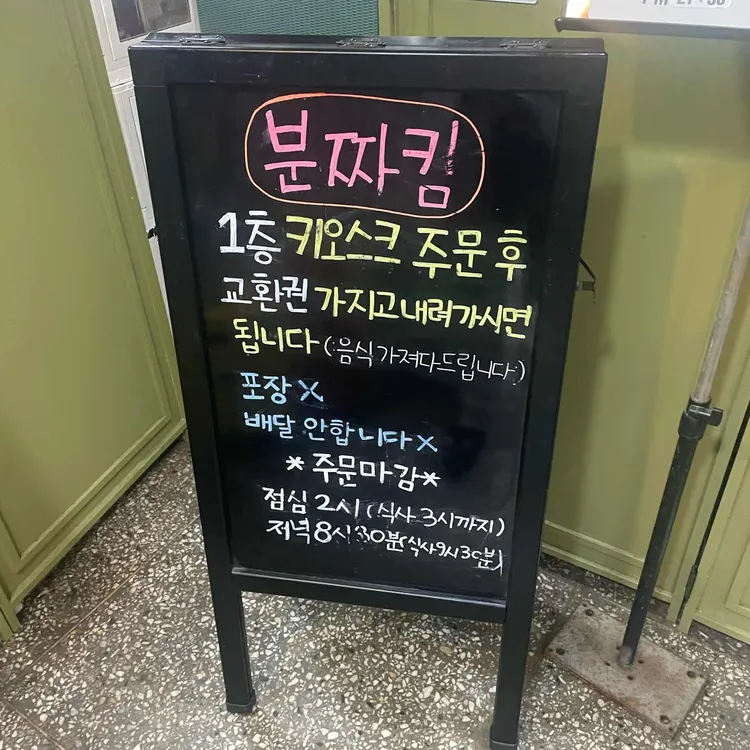 분짜킴
1층 키오스크 주문 후
교환권 가지고 내려가시면
됩니다 (음식 가져다드립니다)
포장 X
배달 안합니다 X
*주문마감*
점심 2시 (식사 3시까지)
저녁 8시30분(식사9시30분)